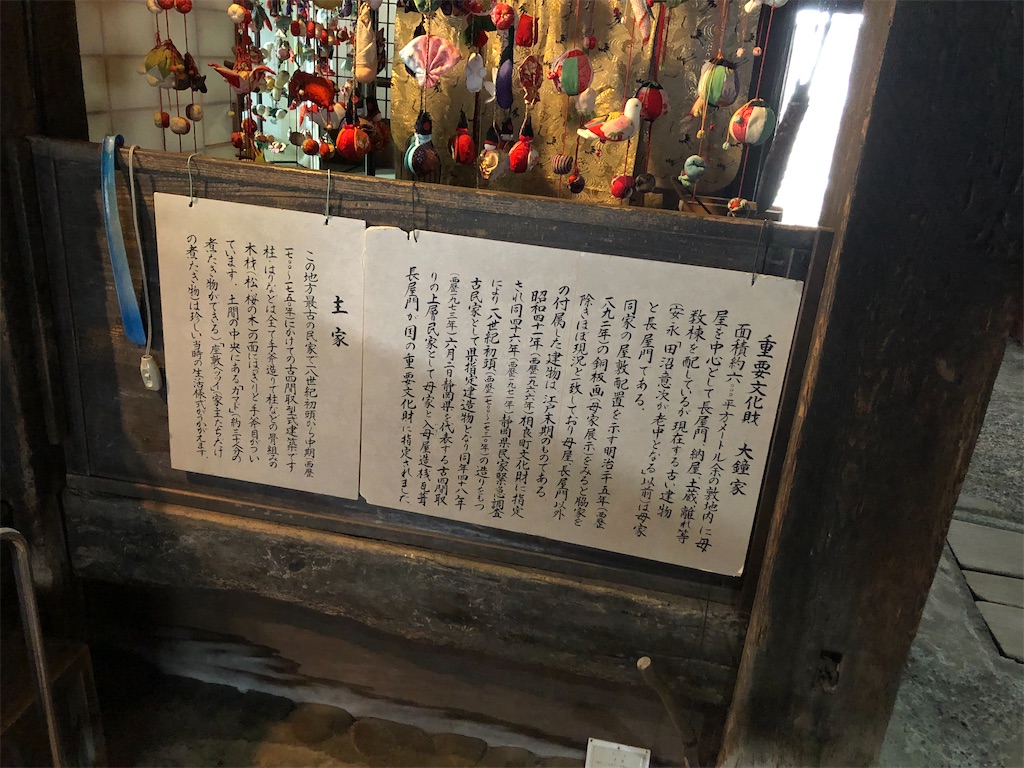 重要文化財　大鐘家
面積約六〇〇〇平方メートル余の敷地内に母
屋を中心として長屋門、納屋、土蔵、離れ等
数棟を配しているが現在する古い建物
(安永「田沼意次が老中となる」以前)は母家
と長屋門である。
同家の屋敷配置を示す明治二十五年(西歴
一八九二年)の銅板画(母家展示)をみると脇家を
除きほぼ現況と一致しており母屋、長屋門以外
の付属した建物は、江戸末期のものである
昭和四十一年(西歴一九六六年)相良町文化財に指定
され同四十六年(西歴一九七一年)静岡県民家緊急調査
により一八世紀初頭(西歴一七〇〇〜一七一〇年)の造りをもつ
古民家として県指定建造物となり同年四十八年
(西歴一九七三年)六月二日静岡県を代表する古四間取
りの上層民家として母家と入母屋造桟瓦葺
長屋門が国の重要文化財に指定されました
主家
この地方最古の民家で一八世紀初頭から中期(西歴
一七〇〇〜一七五〇年)にかけての古四間取型式建築です
柱、はりなどは全て手斧造りで柱などの骨組の
木材(松、桜の木)の面にはほどりど手斧目がつい
ています。土間の中央にある「カマド」(約三十人分の
煮たき物ができる)座敷へついて(家主たちだけ
の煮たき物)は珍しい当時の生活様式がうかがえます。